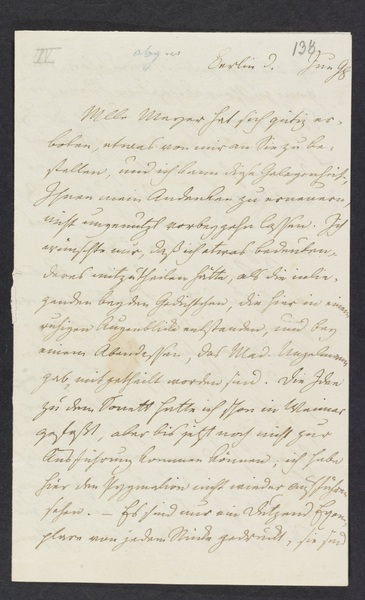 IV abges 138
Berlin d. Jun 98
Mlle Meyer hat sich gütig er-
boten, etwas von mir an Sie zu be-
stellen, und ich kann diese Gelegenheit,
Ihnen mein Andenken zu erneuern,
nicht ungenutzt vorbeygehn lassen. Ich
wünschte nur, daß ich etwas bedeuten-
deres mitzutheilen hätte, als die inlie-
genden beyden Gedichtchen, die hier in einem
ruhigen Augenblicke entstanden, und bey
einem Abendessen, das Mad. Unzelmann
gab, mitgetheilt worden sind. Die Idee
zu dem Sonett hatte ich schon in Weimar
gefaßt, aber bis jetzt noch nicht zur
Ausführung kommen können; ich habe
hier den Pygmalion nicht wieder aufführen
sehen. – Es sind nur ein Dutzend Exem-
plare von jedem Stücke gedruckt, sie sind